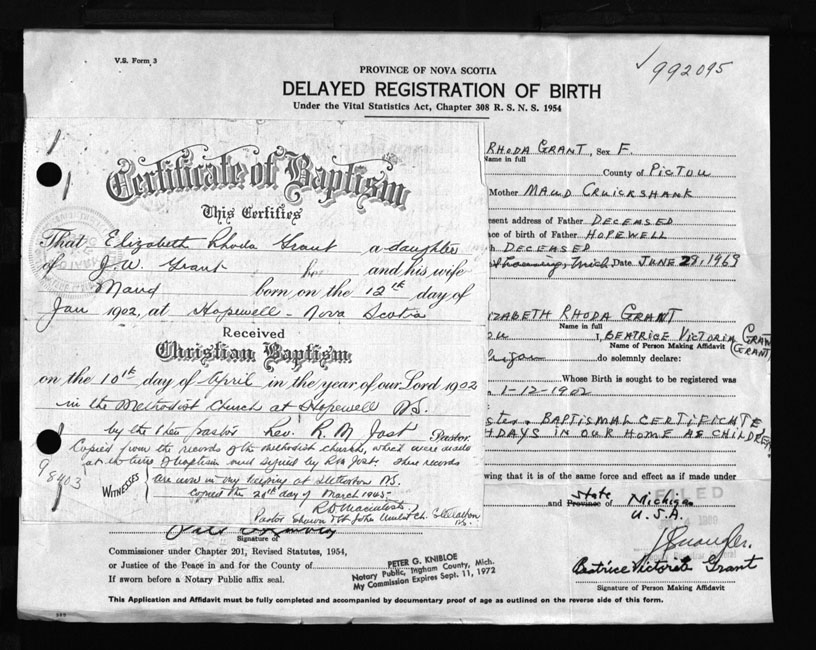 V.S. Form 3
992095
PROVINCE OF NOVA SCOTIA
DELAYED REGISTRATION OF BIRTH
Under the Vital Statistics Act, Chapter 308 R. S. N. S. 1954
RHODA GRANT, Sex F.
Name in full
County of PICTOU
Mother MAUD CRUICKSHANK
present address of Father DECEASED
ce of birth of Father HOPEWELL
DECEASED
Mich Date JUNE 29, 1969
IZABETH RHODA GRANT
Name in full
I, BEATRICE VICTORIA (GRANT)
Name of Person Making Affidavit
do solemnly declare:
Whose Birth is sought to be registered was
1-12-1902
BAPTISMAL CERTIFICATE,
HDAYS IN OUR HOME AS CHILDREN
wing that it is of the same force and effect as if made under
State
and Province of Michigan
U.S.A.
FILED
Certificate of Baptism
This Certifies
That Elizabeth Rhoda Grant a daughter
of J. W. Grant and his wife
Maud born on the 12th day of
Jan 1902, at Hopewell - Nova Scotia
Received
Christian Baptism
on the 10th day of April in the year of our Lord 1902
in the Methodist Church at Hopewell N.S.
by the then pastor Rev. R. M. Jost Pastor.
Copied from the records of the Methodist church, which were made
at the time of baptism and signed by Rev. Jost. These records
98403
WITNESSES
are now in my keeping at Stellarton N.S.
copied this 20th day of March 1945-
Pastor Sharon & St John United Ch. Stellarton
N.S.
Signature of
Commissioner under Chapter 201, Revised Statutes, 1954,
or Justice of the Peace in and for the County of
If sworn before a Notary Public affix seal.
PETER G. KNIBLOE
Notary Public, Ingham County, Mich.
My Commission Expires Sept. 11, 1972
Beatrice Victoria Grant
Signature of Person Making Affidavit
This Application and Affidavit must be fully completed and accompanied by documentary proof of age as outlined on the reverse side of this form.